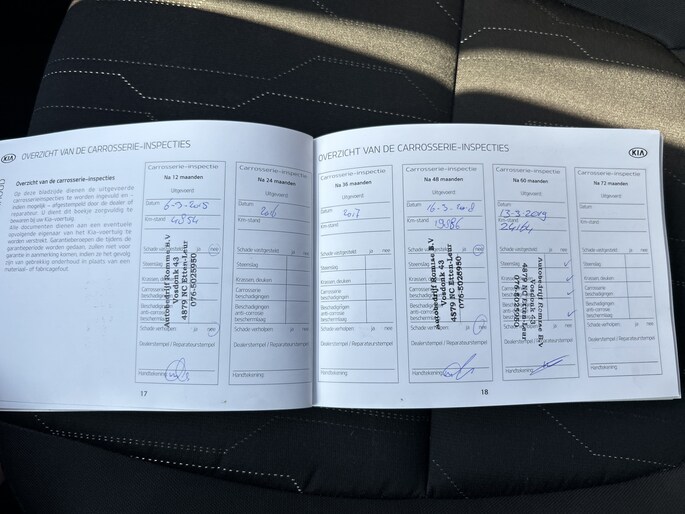 KIA
OVERZICHT VAN DE CARROSSERIE-INSPECTIES
Overzicht van de carrosserie-inspecties
Op deze bladzijde dienen de uitgevoerde
carrosserieinspecties te worden ingevuld en -
indien mogelijk - afgestempeld door de dealer of
reparateur. U dient dit boekje zorgvuldig te
bewaren bij uw Kia-voertuig.
Alle documenten dienen aan een eventuele
opvolgende eigenaar van het Kia-voertuig te
worden verstrekt. Garantieberoepen die tijdens de
garantieperiode worden gedaan, zullen niet voor
garantie in aanmerking komen, indien ze het gevolg
zijn van gebrekkig onderhoud in plaats van een
materiaal- of fabricagefout.
Carrosserie-inspectie
Na 12 maanden
Uitgevoerd:
Datum
6-3-2015
Km-stand
4854
Schade vastgesteld ja nee
Steenslag
Krassen, deuken
Carrosserie
beschadigingen
Beschadigingen
anti-corrosie
beschermlaag
Schade verholpen: ja nee
Dealerstempel / Reparateurstempel
Handtekening
Autobedrijf Romise B.V
Vosdonk 43
4879 NC Etten-Leur
076-5025950
Carrosserie-inspectie
Na 24 maanden
Uitgevoerd:
Datum
2016
Km-stand
Schade vastgesteld ja nee
Steenslag
Krassen, deuken
Carrosserie
beschadigingen
Beschadigingen
anti-corrosie
beschermlaag
Schade verholpen: ja nee
Dealerstempel / Reparateurstempel
Handtekening
17
OVERZICHT VAN DE CARROSSERIE-INSPECTIES
KIA
Carrosserie-inspectie
Na 36 maanden
Uitgevoerd:
Datum
2017
Km-stand
Schade vastgesteld ja nee
Steenslag
Krassen, deuken
Carrosserie
beschadigingen
Beschadigingen
anti-corrosie
beschermlaag
Schade verholpen: ja nee
Dealerstempel / Reparateurstempel
Handtekening
Carrosserie-inspectie
Na 48 maanden
Uitgevoerd:
Datum
16-3-2018
Km-stand
19886
Schade vastgesteld ja nee
Steenslag
Krassen, deuken
Carrosserie
beschadigingen
Beschadigingen
anti-corrosie
beschermlaag
Schade verholpen: ja nee
Dealerstempel / Reparateurstempel
Handtekening
Autobedrijf Romise B.V
Vosdonk 43
4879 NC Etten-Leur
076-5025950
Carrosserie-inspectie
Na 60 maanden
Uitgevoerd:
Datum
13-3-2019
Km-stand
24164
Schade vastgesteld ja nee
Steenslag
Krassen, deuken
Carrosserie
beschadigingen
Beschadigingen
anti-corrosie
beschermlaag
Schade verholpen: ja nee
Dealerstempel / Reparateurstempel
Handtekening
Autobedrijf Romise B.V
Vosdonk 43
4879 NC Etten-Leur
076-5025950
Carrosserie-inspectie
Na 72 maanden
Uitgevoerd:
Datum
Km-stand
Schade vastgesteld ja nee
Steenslag
Krassen, deuken
Carrosserie
beschadigingen
Beschadigingen
anti-corrosie
beschermlaag
Schade verholpen: ja nee
Dealerstempel / Reparateurstempel
Handtekening
18